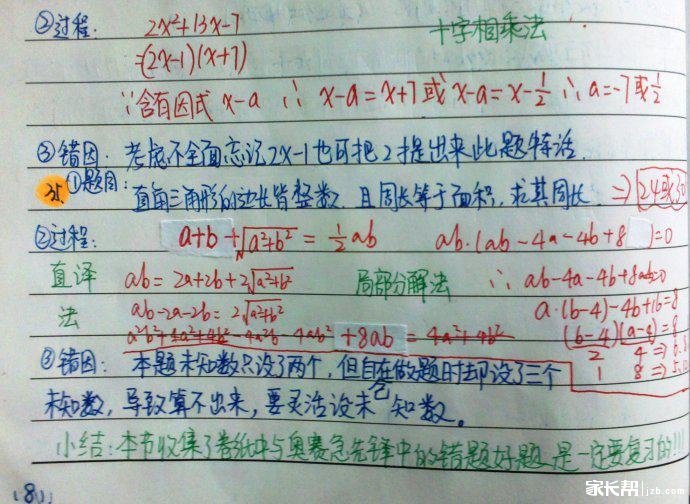 ②过程: 2x²+13x-7 十字相乘法
=(2x-1)(x+7)
∵含有因式 x-a ∴ x-a=x+7或x-a=x-1/2 ∴a=-7或1/2
③错因: 考虑不全面忘记2x-1也可把2才提出来此题特活
35. ①题目: 直角三角形的边长皆整数,且周长等于面积,求其周长. ⇒24或30
②过程: a+b+√a²+b² = 1/2 ab ab·(ab-4a-4b+8)=0
直译 ab=2a+2b+2√a²+b² 局部分解法 ∴ ab-4a-4b+8=0
法 ab-2a-2b=2√a²+b² a·(b-4)-4b+16=8
a²b²+4a²+4b²-4a²b-4ab²+8ab=4a²+4b² (b-4)(a-4)=8
2 4 ⇒ 6.8
③错因: 本题未知数只设了两个,但自在做题时却设了三个 1 8 ⇒ 5.12
未知数,导致算不出来,要灵活设未知数。
小结:本节收集了卷纸中与奥赛急先锋中的错题好题 是一定要复习的!!!
家长帮 jzb.com